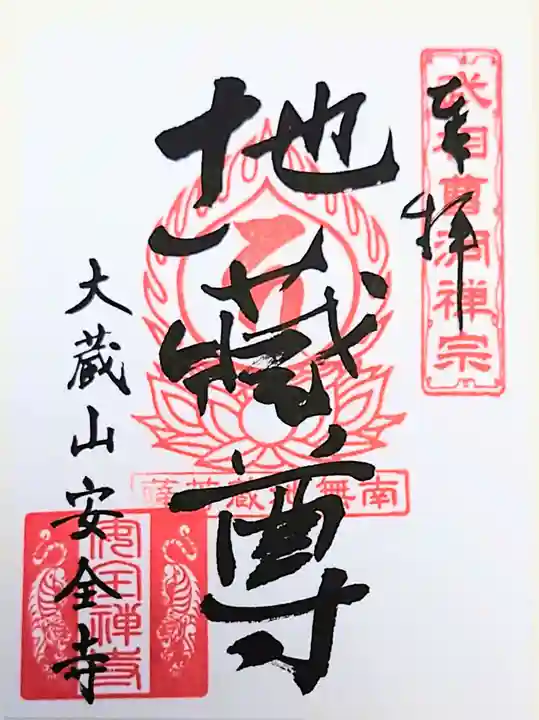 奉拝
武相曹洞禅宗
地蔵尊
南無地蔵菩薩
大蔵山安全寺
安全禅寺